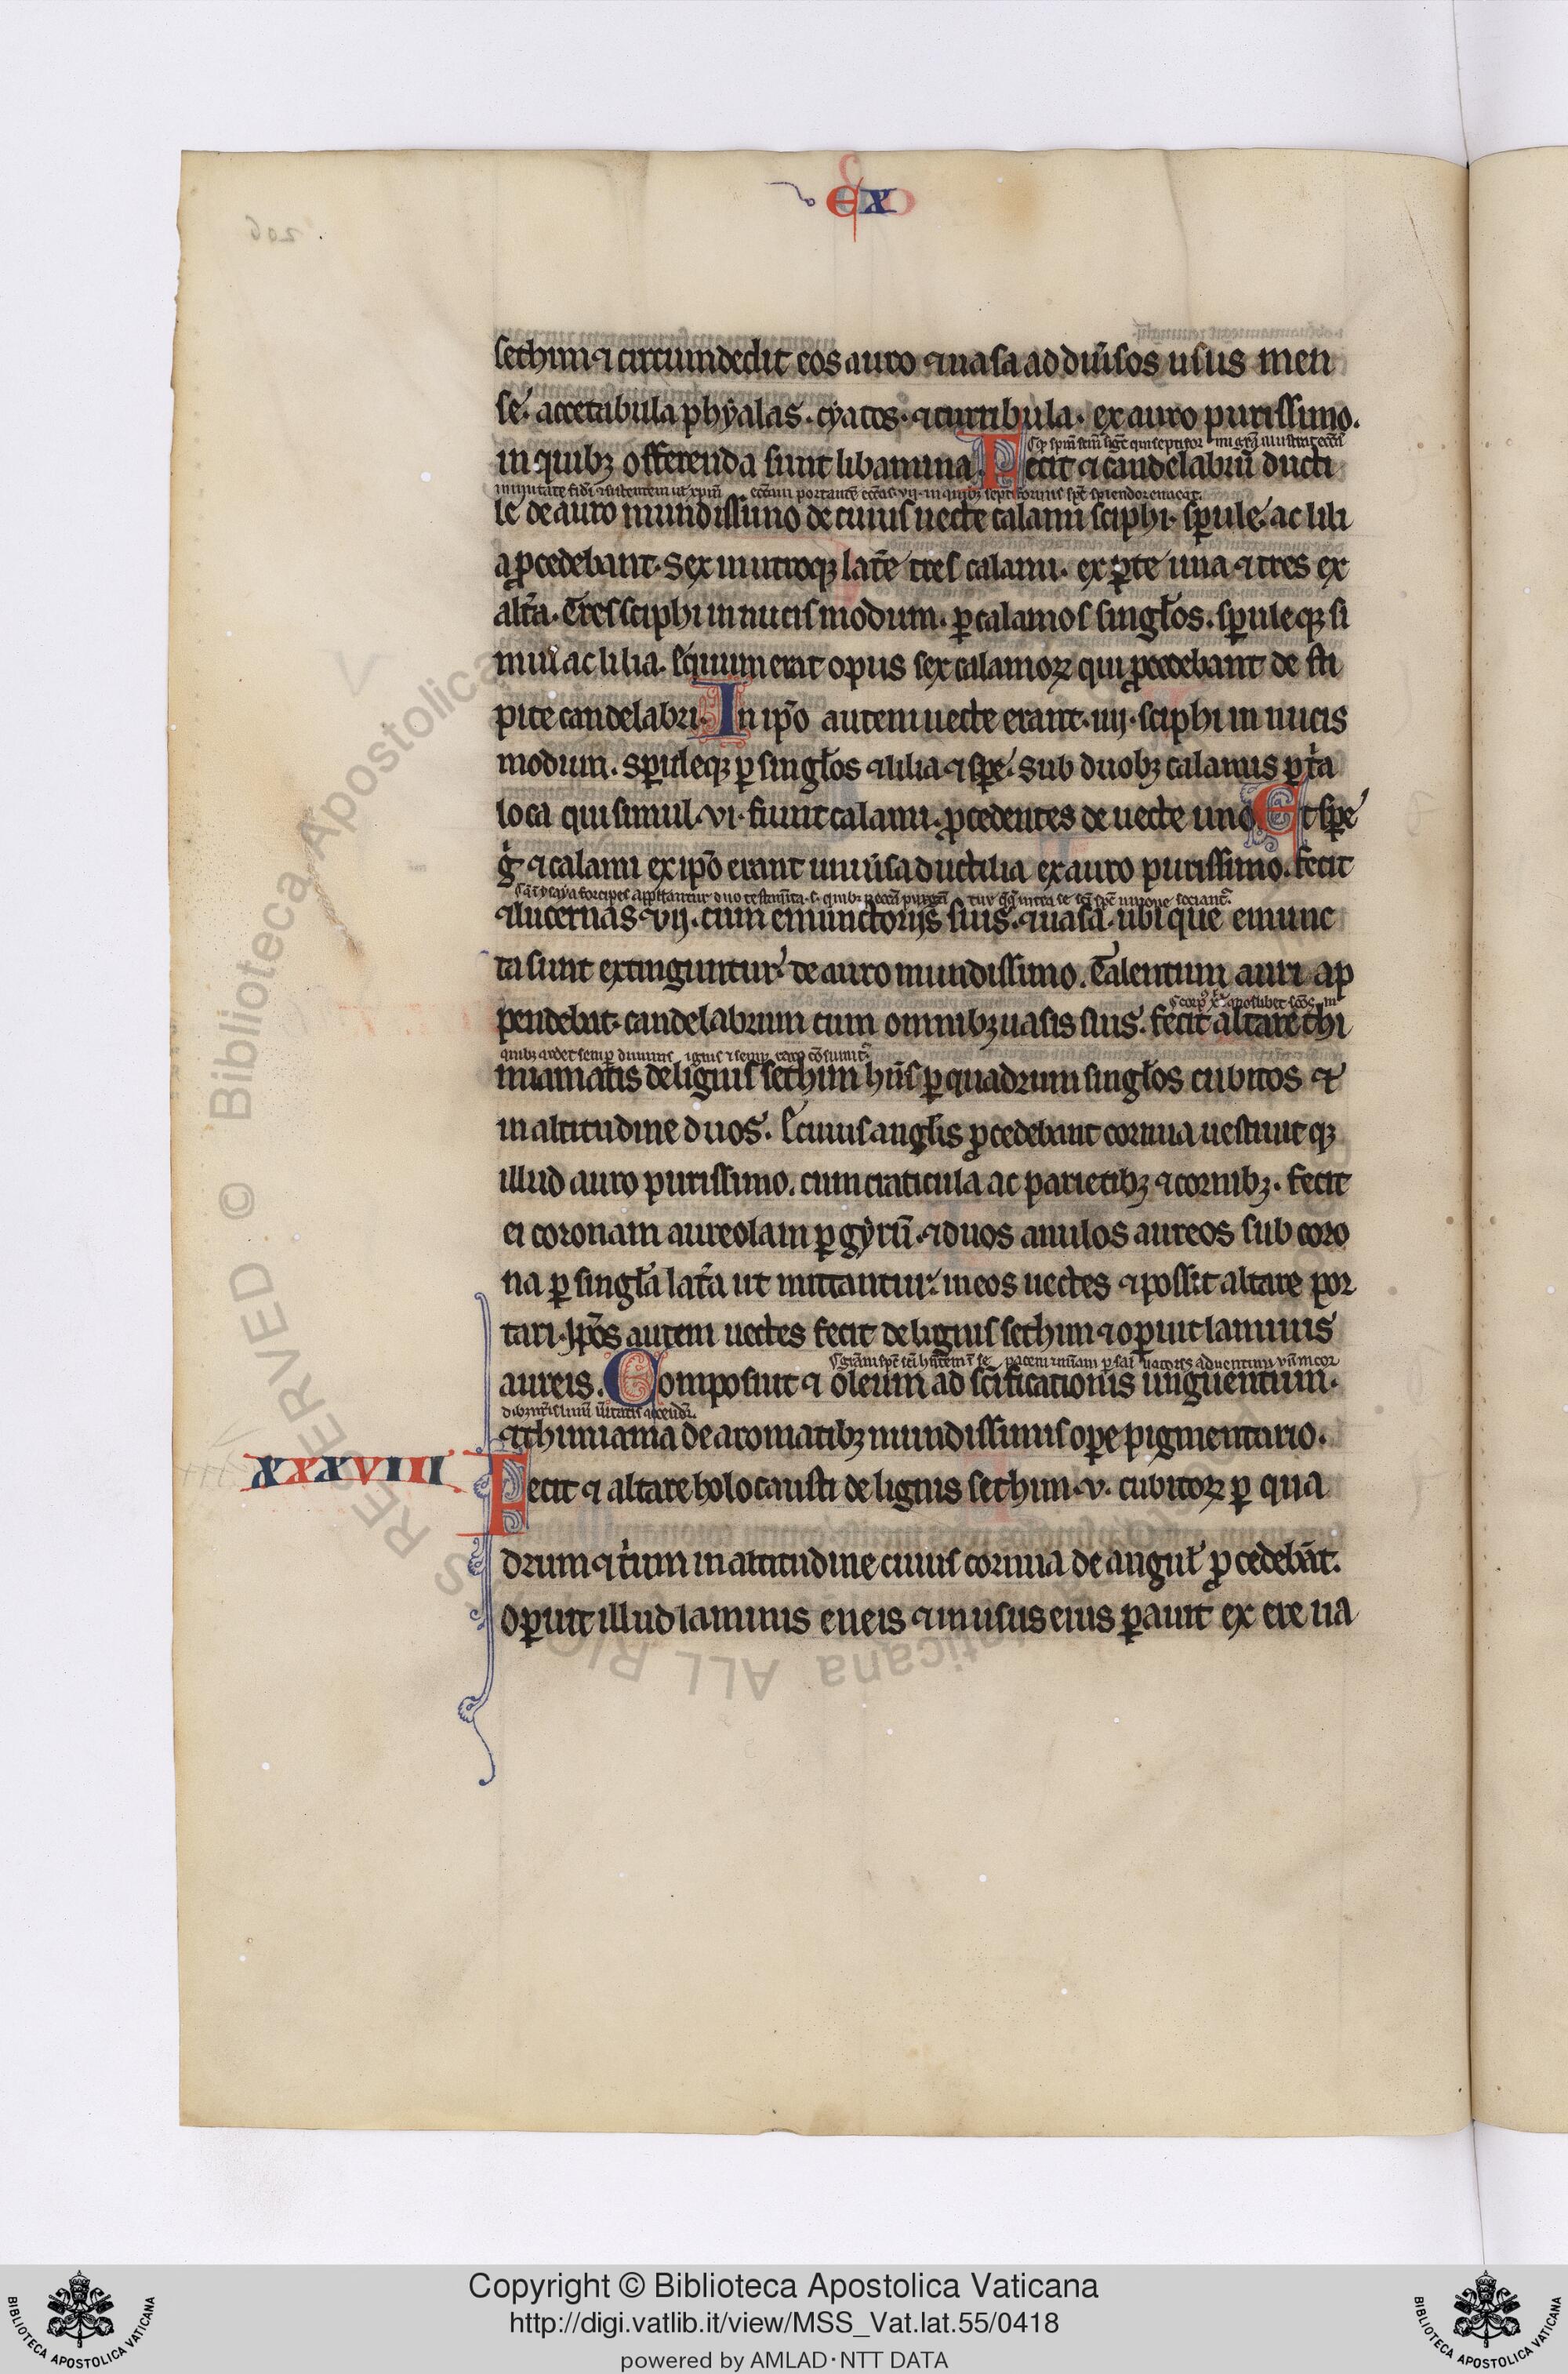 EX
sethim ⁊ circumdedit eos auro ⁊ uasa ad diũsos usus men
se. accetabula phyalas. cyatos. ⁊ turribula. ex auro purissimo.
in quibȝ offerenda sunt libamina. Fecit ⁊ candelabrũ ducti
le de auro mundissimo de cuius uecte calami sciphi. sꝑule. ac lili
a ꝓcedebant. Sex in utroqȝ latẽ tres calami. ex ꝑte una. ⁊ tres ex
altã. Tres sciphi in nucis modum. ꝑ calamos singl̃os. sꝑuleqȝ si
mul ac lilia. Equum erat opus sex calamoꝝ qui ꝓcedebant de sti
pite candelabri. In ip̃o autem uecte erant. iiij. sciphi in nucis
modum. sꝑuleqȝ ꝑ singl̃os ⁊ lilia ⁊ sꝑe. sub duobȝ calamis ꝑ t̾a
loca qui simul. vi. fiunt calami. ꝓcedentes de uecte uno. Et sꝑe
g̾ ⁊ calami ex ip̃o erant uniũsa ductilia ex auro purissimo. fecit
⁊ lucernas. vij. cum emunctorijs suis. ⁊ uasa. ubi que emunc
ta sunt extinguntur. de auro mundissimo. Talentum auri ap
pendebat. candelabrum cum omnibȝ uasis suis. fecit altare thi
miamatis de lignis sethim hñs ꝑ quadrum singl̃os cubitos ⁊
in altitudine duos. E cuius angl̃is ꝓcedebant cornua uestiuit qȝ
illud auro purissimo. cum craticula ac parietibȝ ⁊ cornibȝ. fecit
ei coronam aureolam ꝑ gyrũ. ⁊ duos anulos aureos sub coro
na ꝑ singl̃a latã ut mittantur. in eos uectes ⁊ possit altare por
tari. Ip̃os autem uectes fecit de lignis sethim ⁊ operuit laminis
aureis. Composuit ⁊ oleum ad sc̃ificationis unguentum.
⁊ thimiama de aromatibȝ mundissimis ope pigmentario.
XXXVIII
Fecit ⁊ altare holocausti de lignis sethim. v. cubitoꝝ ꝑ qua
drum ⁊ t̾ium in altitudine cuius cornua de angul̃ ꝓcedebãt.
Oꝑuit illud laminis eneis ⁊ in usus eius ꝑauit ex ere ua
Biblioteca Apostolica Vaticana ALL RIGHTS RESERVED ©
Copyright © Biblioteca Apostolica Vaticana
http://digi.vatlib.it/view/MSS_Vat.lat.55/0418
powered by AMLAD·NTT DATA
BIBLIOTECA APOSTOLICA VATICANA
BIBLIOTECA APOSTOLICA VATICANA